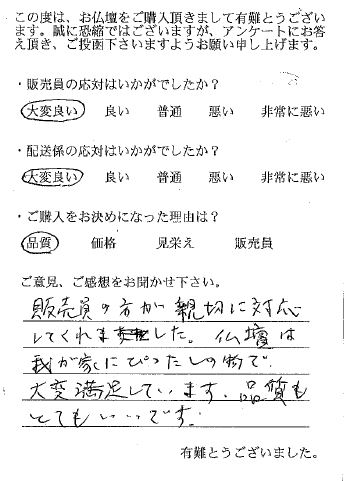 この度は、お仏壇をご購入頂きまして有難とうござい
ます。誠に恐縮ではございますが、アンケートにお答
え頂き、ご投函下さいますようお願い申し上げます。
・販売員の応対はいかがでしたか？
大変良い 良い 普通 悪い 非常に悪い
・配送係の応対はいかがでしたか？
大変良い 良い 普通 悪い 非常に悪い
・ご購入をお決めになった理由は？
品質 価格 見栄え 販売員
ご意見、ご感想をお聞かせ下さい。
販売員の方が親切に対応
してくれました。仏壇は
我が家にぴったしの物で
大変満足しています。品質も
とてもいいです。
有難とうございました。